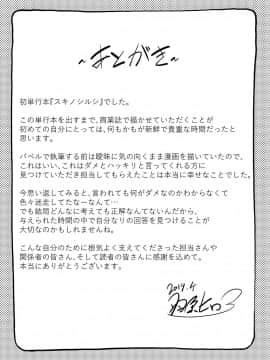 ～あとがき～
初単行本『スキノシルシ』でした。
この単行本を出すまで、商業誌で描かせていただくことが
初めての自分にとっては、何もかもが新鮮で貴重な時間だったと
思います。
バベルで執筆する前は曖昧に気の向くまま漫画を描いていたので、
これはいい、これはダメとハッキリと言ってくれる方に
見つけていただき担当してもらえたことは本当に幸せなことでした。
今思い返してみると、言われても何がダメなのかわからなくて
色々迷走してたな～なんて…
でも結局どんなに考えても正解なんてないんだから、
与えられた時間の中で自分なりの回答を見つけることが
大切なのかもしれませんね。
こんな自分のために根気よく支えてくださった担当さんや
関係者の皆さん、そして読者の皆さんに感謝を込めて。
本当にありがとうございます。
2019.4